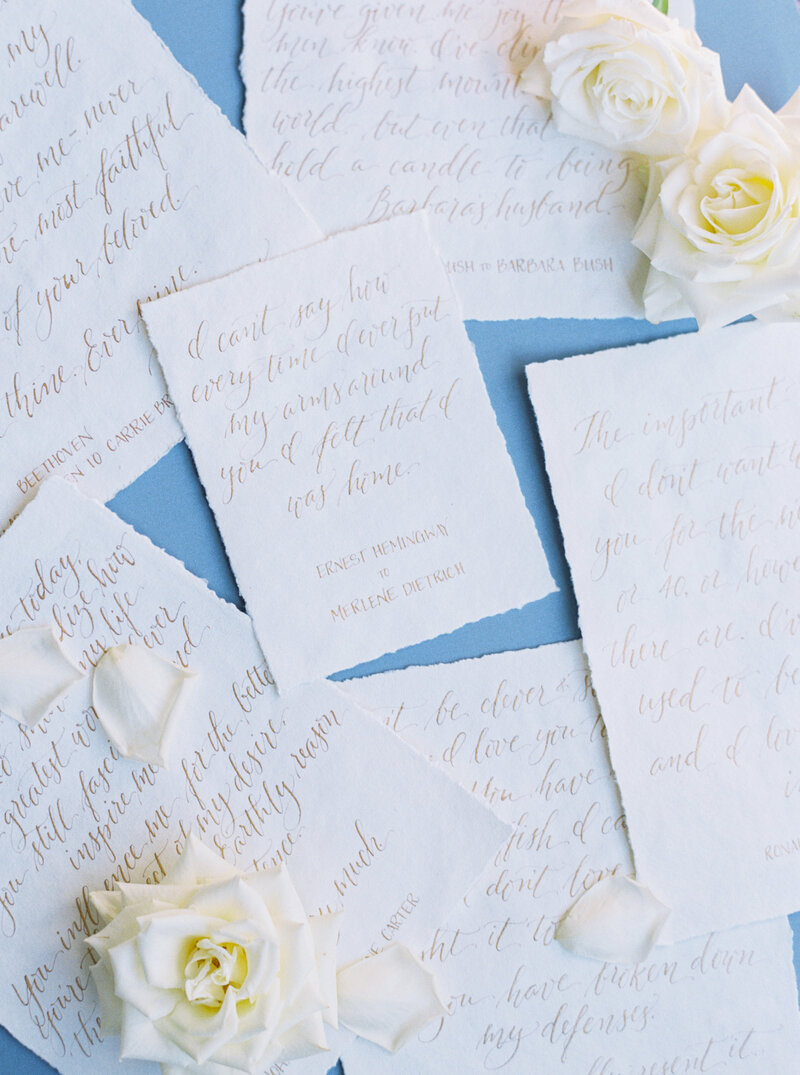 my
arewell.
ve me - never
most faithful
of your beloved.
Ever mine.
thine. Ever
BEETHOVEN
TO CARRIE BR
You've given me joy th
men know. I've clim
the highest mount
world, but even that
hold a candle to being
Barbara's husband.
USH to BARBARA BUSH
I can't say how
every time I ever put
my arms around
you I felt that I
was home.
ERNEST HEMINGWAY
to
MERLENE DIETRICH
The important
I don't want
you for the
or 40, or how
there are. I'v
used to be
and I lov
RONA
today,
lize how
my life
ever
greatest wo
you still fasc
inspire me.
You influence me for the bett
You're the object of my desire,
the earthly reason
much
E CARTER
t be clever &
d love you to
you have
fish I ca
don't love
ght it to
you have broken down
my defenses.
lly resent it.